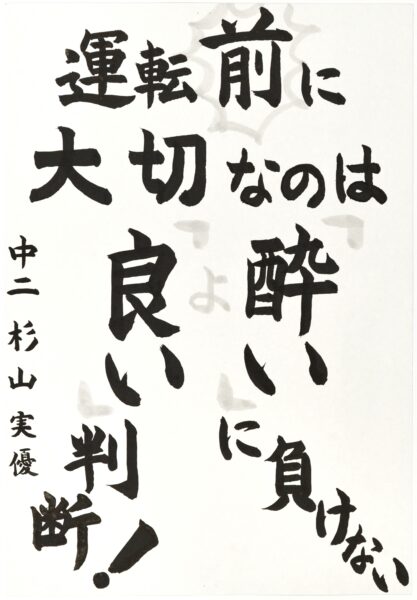 運転前に
大切なのは
酔いに負けない
よ
良い判断!
中二 杉山実優